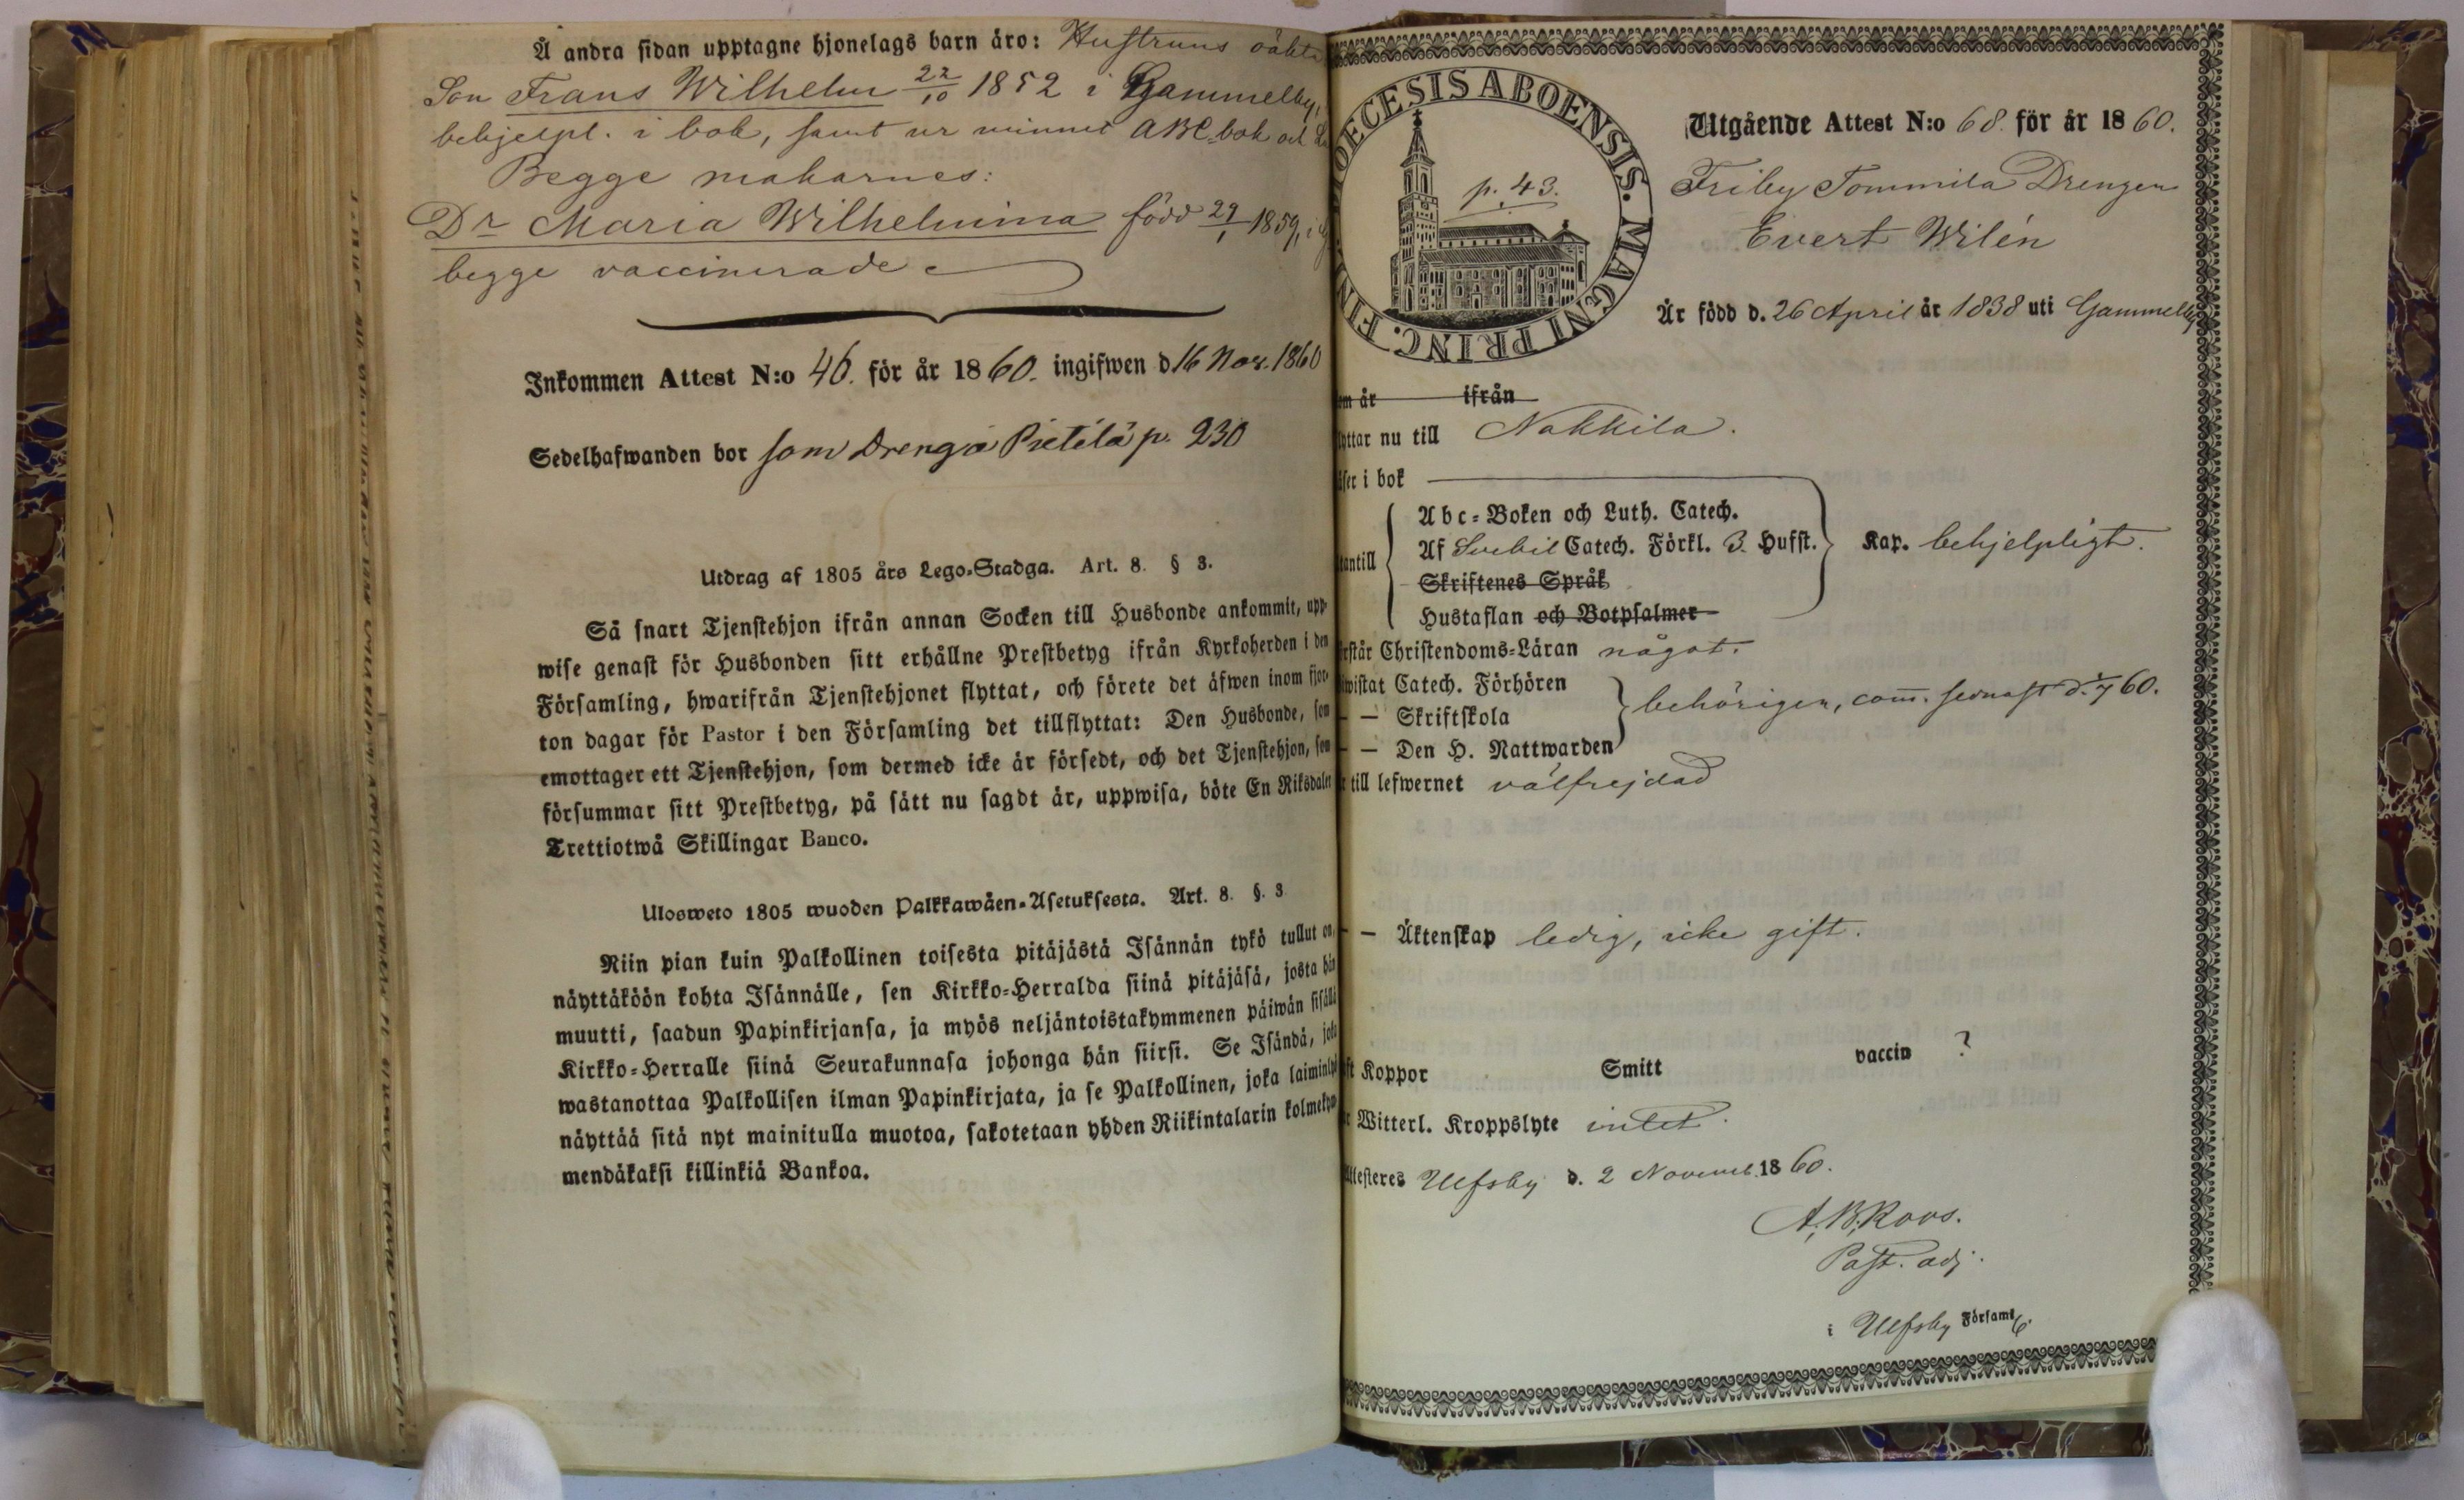 Å andra sidan upptagne hjonelags barn äro: Hustruns oäkta
Son Frans Wilhelm 22/10 1852 i Gammelby,
behjelpl. i bok, samt ur minnet ABC bok och
Begge makarnes:
Dr Maria Wilhelmina född 29/1 1859, i
begge vaccinerade
Inkommen Attest N:o 46. för år 1860. ingifwen d 16 Nov. 1860
Sedelhafwanden bor som Dreng å Pietilä p. 230
Utdrag af 1805 års Lego-Stadga. Art. 8. § 3.
Så snart Tjenstehjon ifrån annan Socken till Husbonde ankommit, upp-
wise genast för Husbonden sitt erhållne Prestbetyg ifrån Kyrkoherden i den
Församling, hwarifrån Tjenstehjonet flyttat, och förete det äfwen inom fjor-
ton dagar för Pastor i den Församling det tillflyttat: Den Husbonde, som
emottager ett Tjenstehjon, som dermed icke är försedt, och det Tjenstehjon, som
försummar sitt Prestbetyg, på sätt nu sagdt är, uppwisa, böte En Riksdaler
Trettiotwå Skillingar Banco.
Ulosweto 1805 wuoden Palkkawäen-Asetuksesta. Art. 8. §. 3
Niin pian kuin Palkollinen toisesta pitäjästä Isännän tykö tullut on,
näyttäköön kohta Isännälle, sen Kirkko-Herralda siinä pitäjäsä, josta hän
muutti, saadun Papinkirjansa, ja myös neljäntoistakymmenen päiwän sisällä
Kirkko-Herralle siinä Seurakunnasa johonga hän siirsi. Se Isändä, joka
wastanottaa Palkollisen ilman Papinkirjata, ja se Palkollinen, joka laiminlyö
näyttää sitä nyt mainitulla muotoa, sakotetaan yhden Riikintalarin kolmekym-
mendäkaksi killinkiä Bankoa.
DIOECESIS ABOENSIS. MAGNI PRINC. FIN
p. 43.
Utgående Attest N:o 68. för år 1860.
Friby Tommila Drengen
Evert Wilén
Är född d. 26 April år 1838 uti Gammelby
om år ifrån
flyttar nu till Nakkila.
läser i bok
Abc-Boken och Luth. Catech.
utantill Af Svebil Catech. Förkl. 3. Hufst. Kap. behjelpligt.
Skriftenes Språk
Hustaflan och Botpsalmer
förstår Christendoms-Läran något.
bewistat Catech. Förhören
— — Skriftskola behörigen, com. senast d. 1/7 60.
— — Den H. Nattwarden
är till lefwernet välfrejdad
— — Äktenskap ledig, icke gift.
haft Koppor Smitt vaccin ?
är Witterl. Kroppslyte intet.
Attesteres Ulfsby d. 2 Novemb. 1860.
A. B. Roos.
Past. adj.
i Ulfsby Föraml.